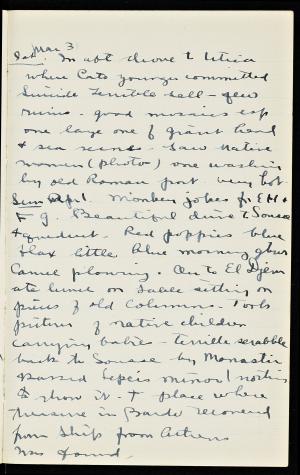 Mar 3
Sat. In aft drove to Utica
where Cato younger committed
suicide Terrible sell - few
ruins - good mosaics esp
one large one of giant head
& sea scenes - Saw native
women (photo) one washing
by old Roman port. very hot
Sun Apr 1. Monkey jokes fr. EH &
F g. Beautiful drive to Sousse
& aqueduct - Red poppies blue
flax little blue morning glories
Camel plowing. On to El Djem
ate lunch on Table sitting on
pieces of old columns. Took
pictures of native children
carrying babies - terrible scrabble
back to Sousse by Monastir
passed Lepcis minor (nothing
to show it - & place where
treasure in Bardo recovered
from ship from Athens
was found.